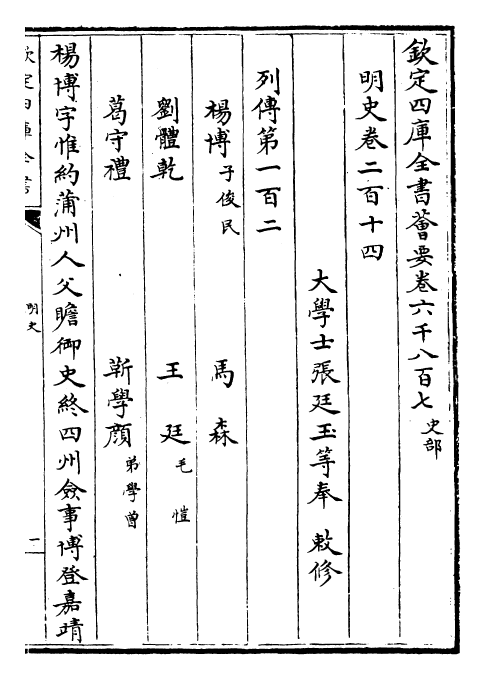 欽定四庫全書薈要卷六千八百七 史部
明史卷二百十四
大學士張廷玉等奉 敕修
列傳第一百二
楊博 子俊民 馬森
劉體乾 王廷 毛愷
葛守禮 靳學顏 弟學曾
楊博字惟約蒲州人父瞻御史終四州僉事博登嘉靖
欽定四庫全書
明史
一